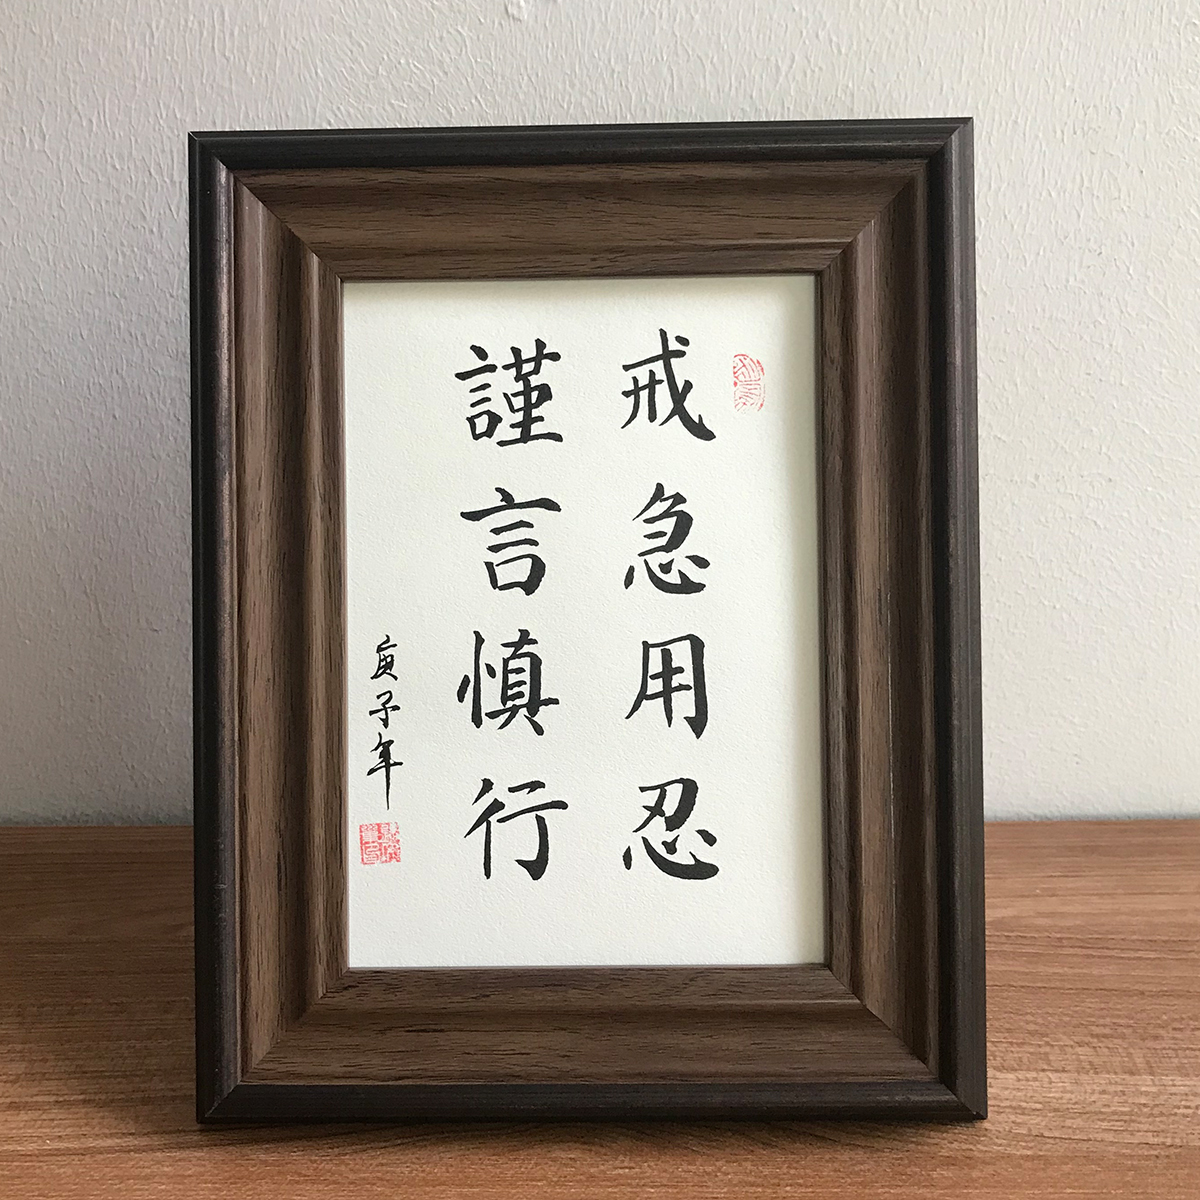 戒急用忍
謹言慎行
庚子年